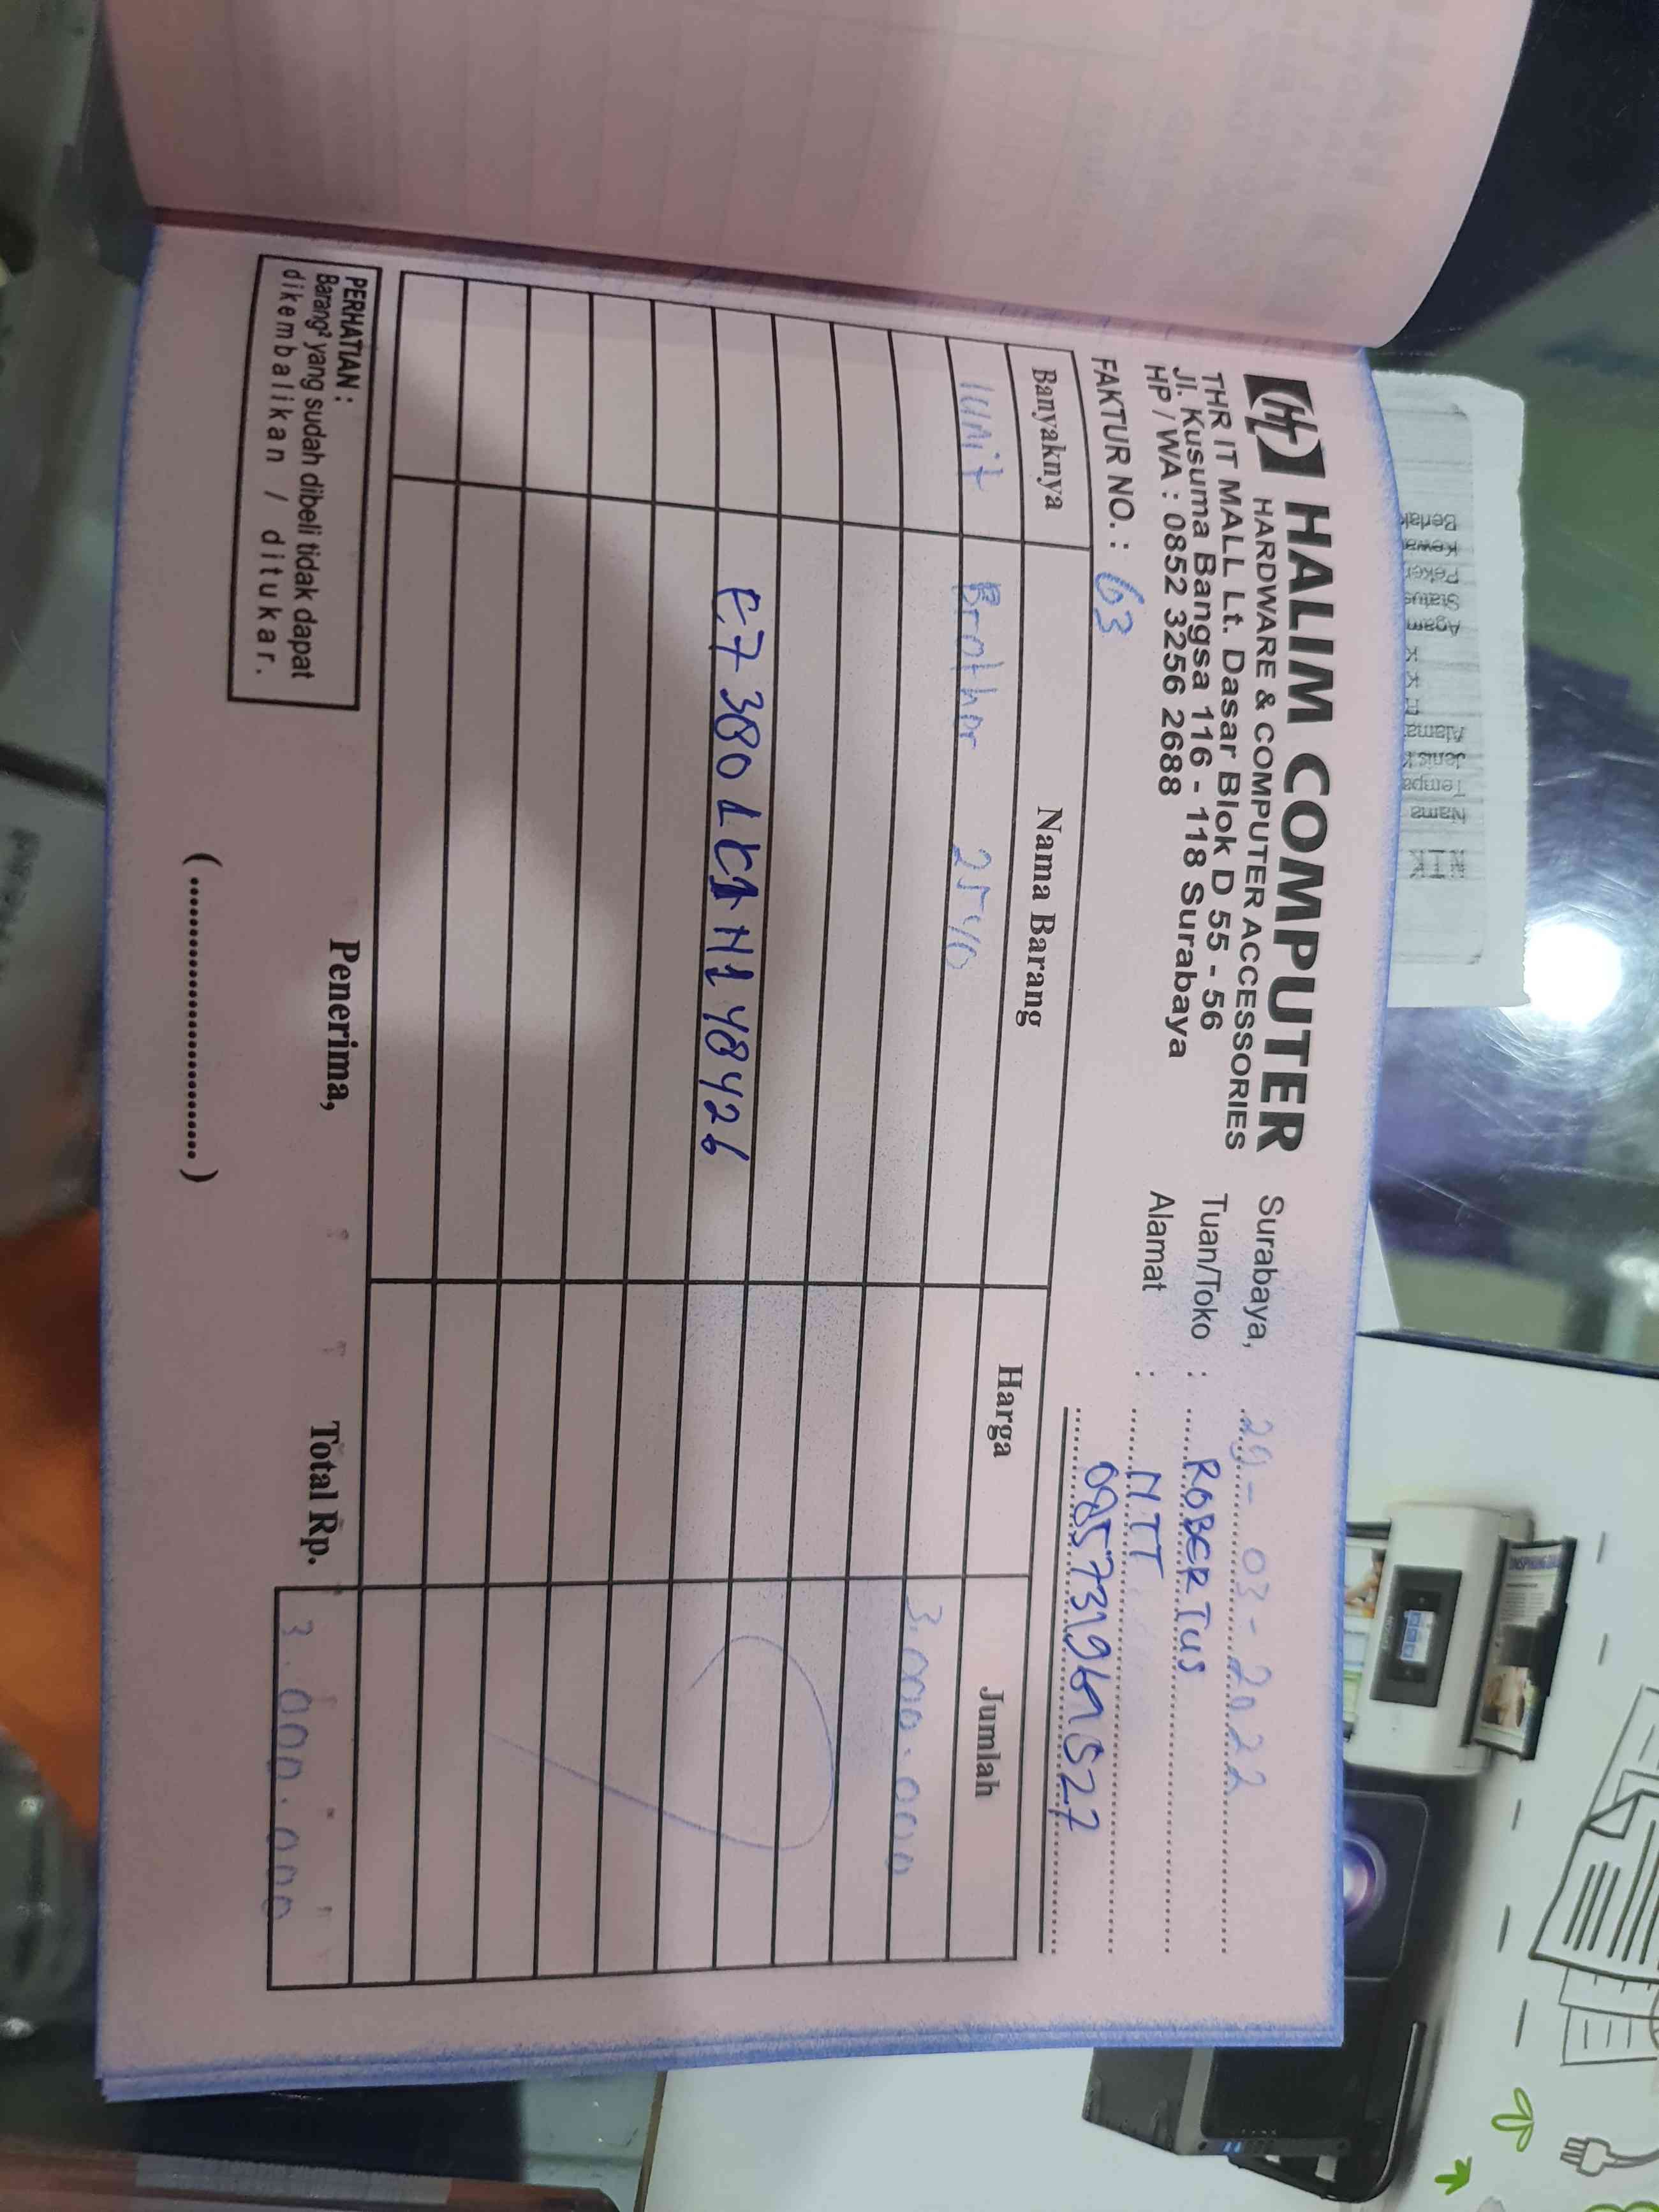 hp HALIM COMPUTER
HARDWARE & COMPUTER ACCESSORIES
THR IT MALL Lt. Dasar Blok D 55 - 56
Jl. Kusuma Bangsa 116 - 118 Surabaya
HP / WA : 0852 3256 2688
FAKTUR NO. : 63
Surabaya, 29 - 03 - 2022
Tuan/Toko : ROBERTUS
Alamat : NTT
Banyaknya Nama Barang Harga Jumlah
1 unit Brother 2540 3.000.000
PERHATIAN :
Barang² yang sudah dibeli tidak dapat
dikembalikan / ditukar.
Penerima,
(....................)
Total Rp. 3.000.000
NIK
Nama
Jenis
Alama
Agam
Status